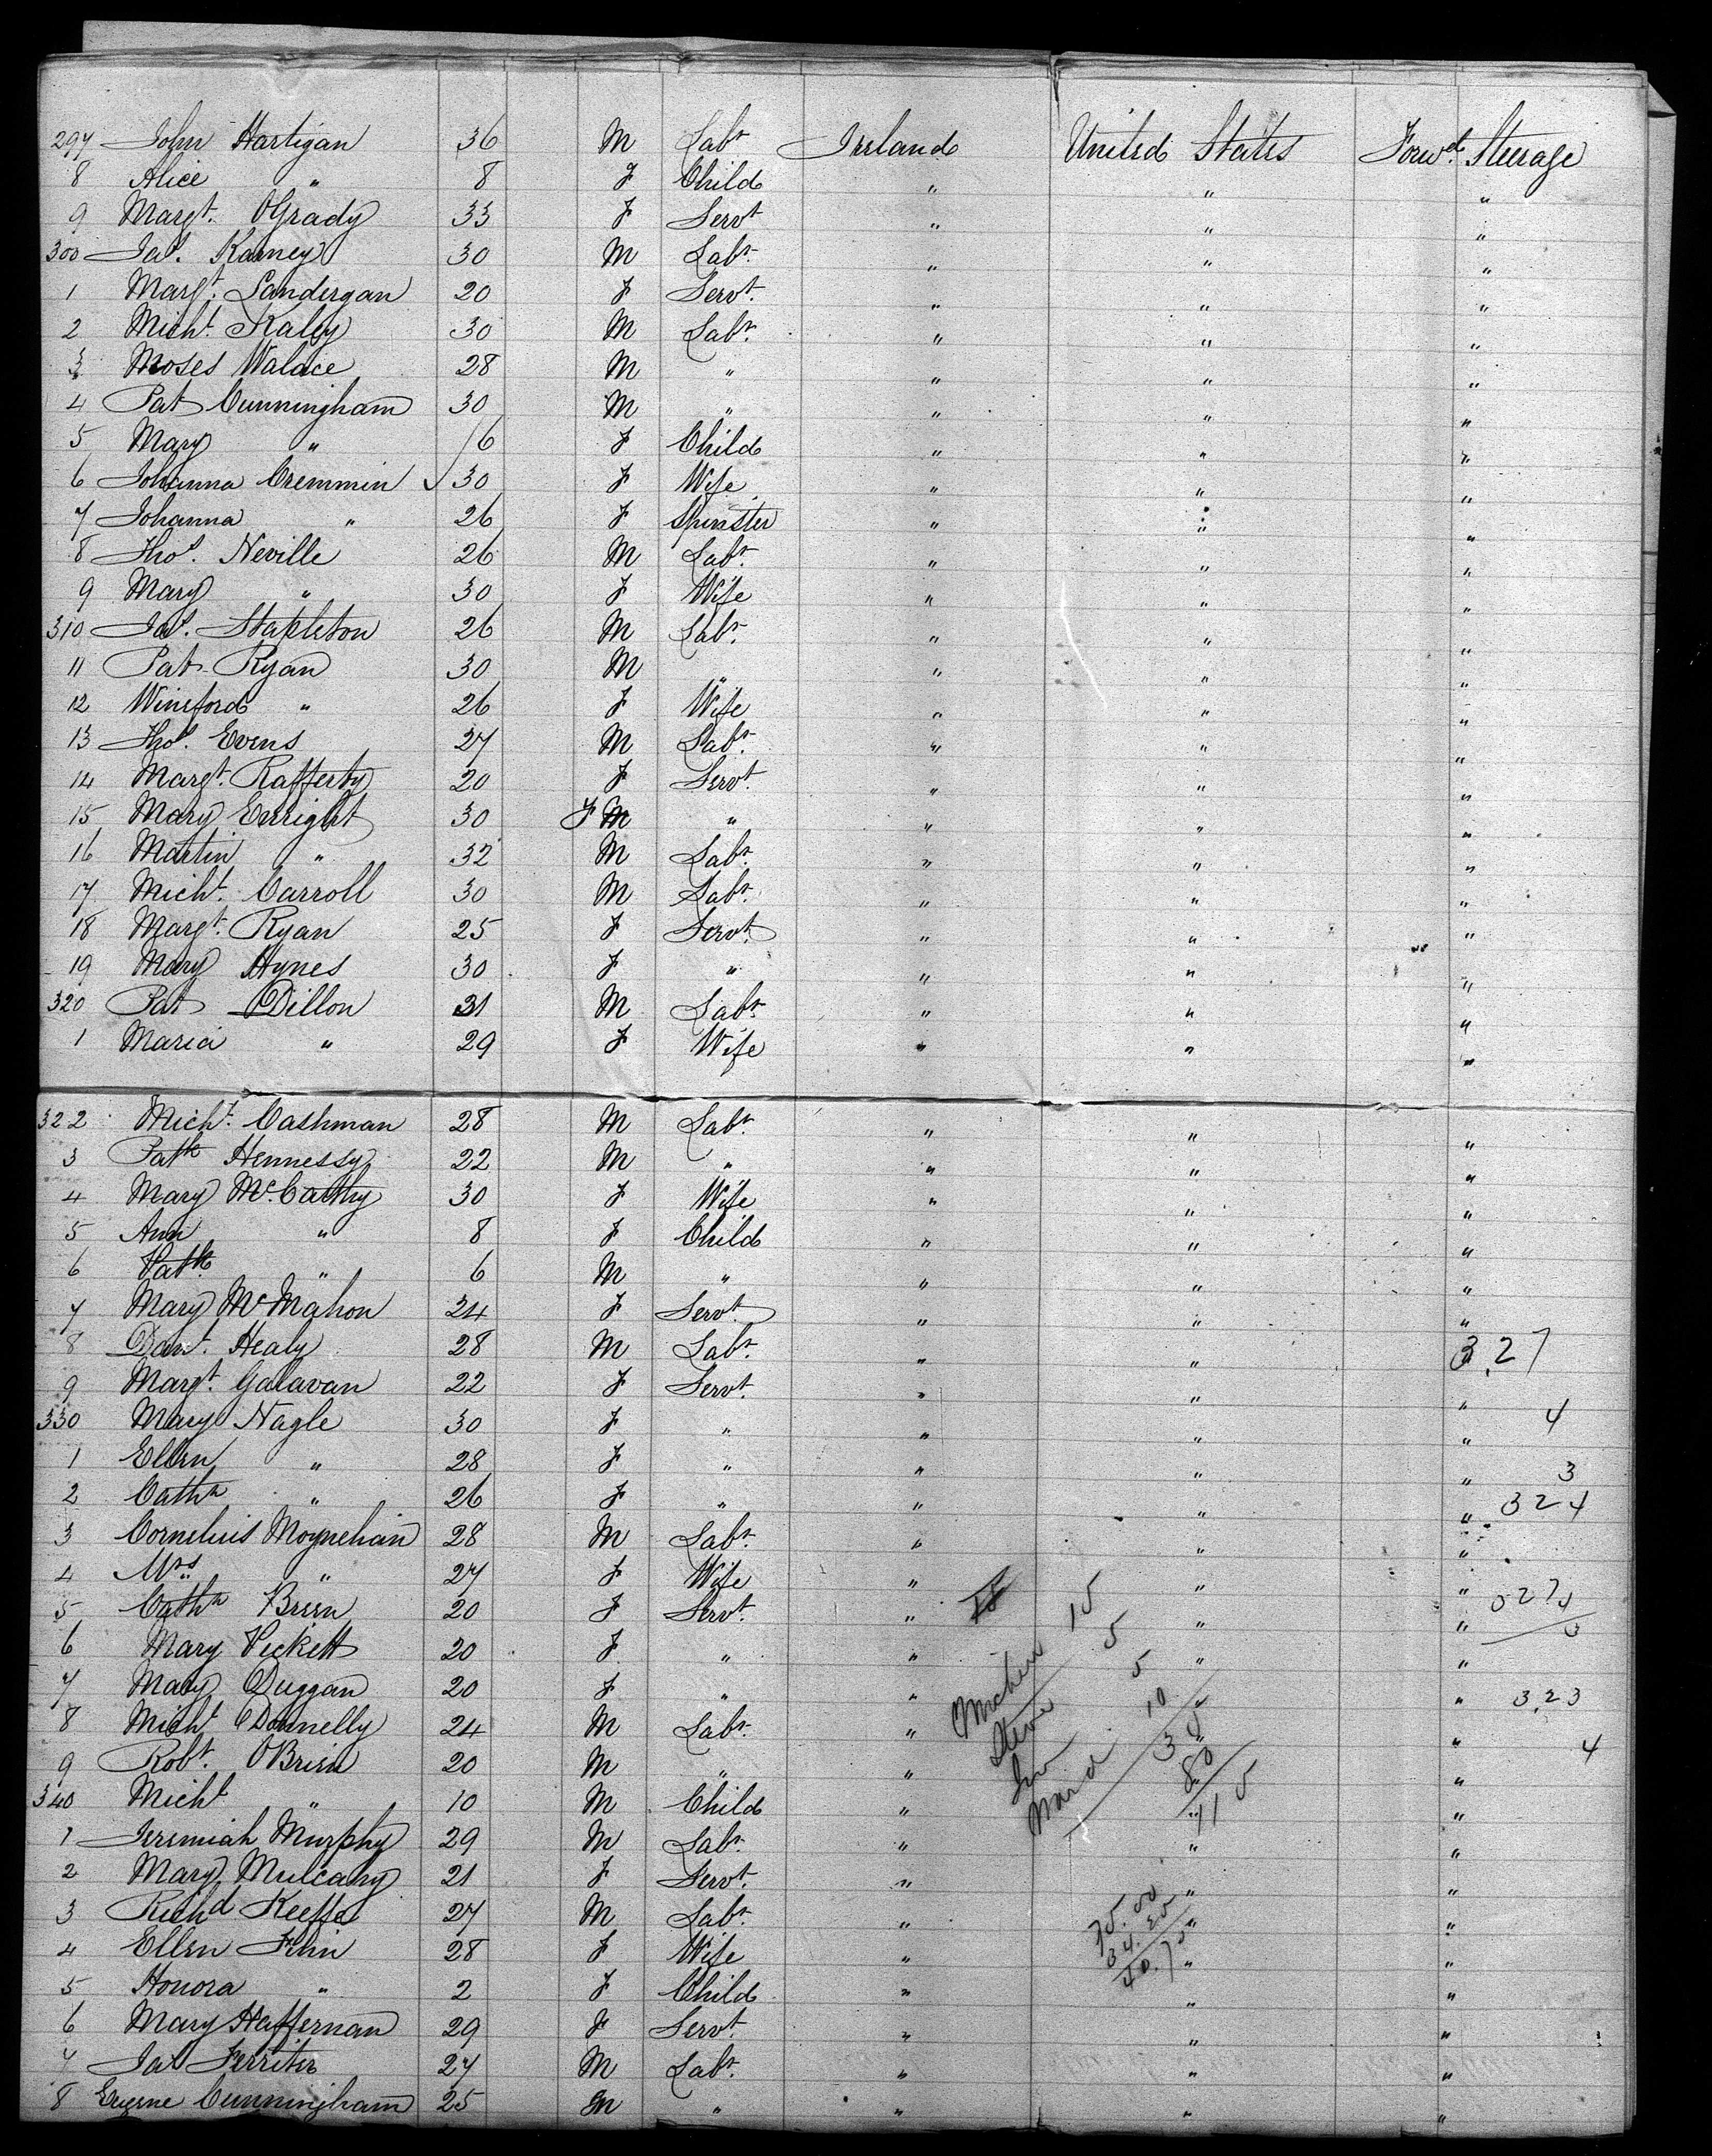 297 John Hartigan 36 M Labr. Ireland United States Forwd. Steerage
8 Alice " 8 F Child " " "
9 Margt. OGrady 33 F Servt " " "
300 Jas. Karney 30 M Labr. " " "
1 Margt. Landergan 20 F Servt. " " "
2 Michl. Kaley 30 M Labr. " " "
3 Moses Walace 28 M " " " "
4 Pat Cunningham 30 M " " " "
5 Mary " 6 F Child " " "
6 Johanna Cremmin 30 F Wife " " "
7 Johanna " 26 F Spinster " " "
8 Thos. Neville 26 M Labr. " " "
9 Mary " 30 F Wife " " "
310 Jas. Stapleton 26 M Labr. " " "
11 Pat Ryan 30 M " " " "
12 Wineford " 26 F Wife " " "
13 Thos. Evens 27 M Labr. " " "
14 Margt. Rafferty 20 F Servt. " " "
15 Mary Enright 30 F " " " "
16 Martin " 32 M Labr. " " "
17 Michl. Carroll 30 M Labr. " " "
18 Margt. Ryan 25 F Servt. " " "
19 Mary Hynes 30 F " " " "
320 Pat Dillon 31 M Labr. " " "
1 Maria " 29 F Wife " " "
322 Michl. Cashman 28 M Labr. " " "
3 Patk Hennessy 22 M " " " "
4 Mary McCarthy 30 F Wife " " "
5 Ann " 8 F Child " " "
6 Patk. " 6 M " " " "
7 Mary McMahon 24 F Servt. " " "
8 Danl. Healy 28 M Labr. " " " 327
9 Margt. Galavan 22 F Servt. " " "
330 Mary Nagle 30 F " " " " 4
1 Ellen " 28 F " " " " 3
2 Cathn " 26 F " " " " 324
3 Cornelius Moynehan 28 M Labr. " " "
4 Mrs. " 27 F Wife " " "
5 Cathn Brien 20 F Servt. " " "
6 Mary Pickett 20 F " " " "
7 Mary Duggan 20 F " " " " 323
8 Michl ODonnelly 24 M Labr. " " " 4
9 Robt. OBrien 20 M " " " "
340 Michl " 10 M Child " " "
1 Jeremiah Murphy 29 M Labr. " " "
2 Mary Mulcahy 21 F Servt. " " "
3 Richd Keeffe 27 M Labr. " " "
4 Ellen Flin 28 F Wife " " "
5 Honora " 2 F Child " " "
6 Mary Haffernan 29 F Servt. " " "
7 Jas Ferriter 27 M Labr. " " "
8 Eugene Cunningham 25 M " " " "
15
5
5
10
80
115
75.00
34.25
40.75